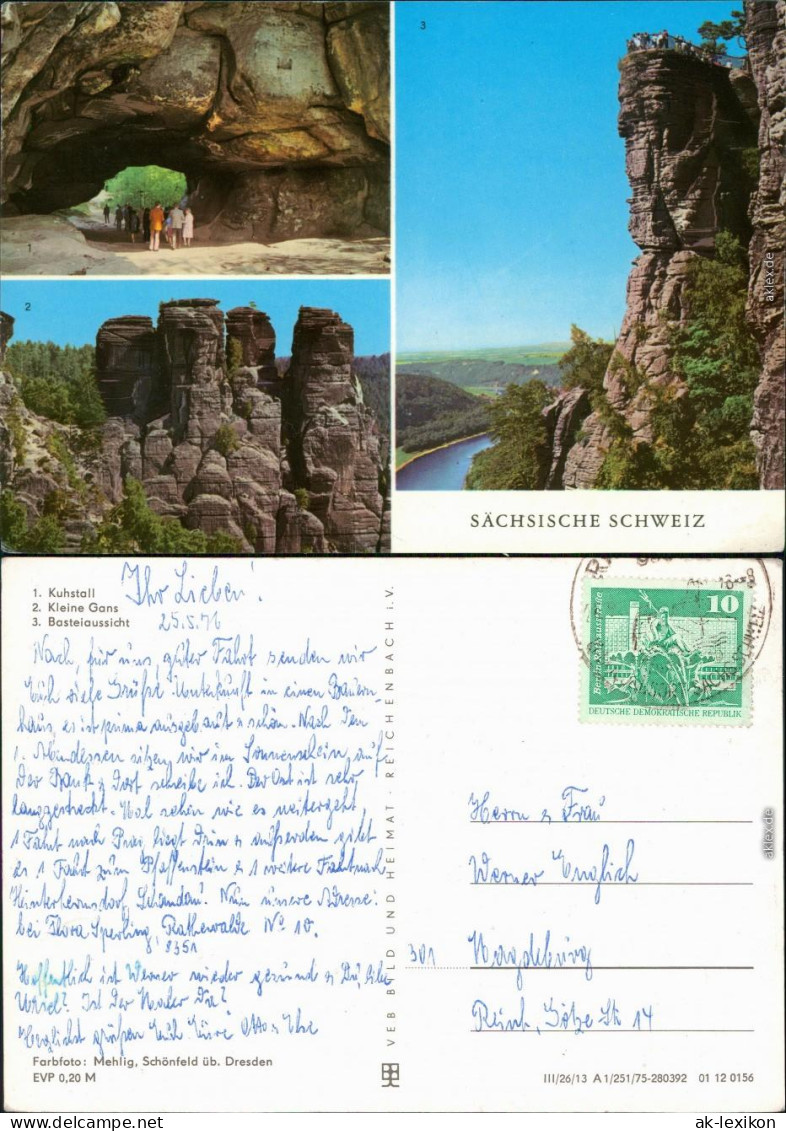 1
2
3
SÄCHSISCHE SCHWEIZ
aklex.de
1. Kuhstall
2. Kleine Gans
3. Basteiaussicht
Ihr Lieben!
25.5.76
Nach, für uns, guter Fahrt senden wir
Euch viele Grüße. Unterkunft in einem Bauern-
haus, es ist prima ausgebaut & schön. Nach dem
1. Abendessen sitzen wir im Sonnenschein auf
der Bank & dort schreibe ich. Der Ort ist sehr
langgestreckt. Mal sehen wie es weitergeht,
1 Fahrt nach Prag liegt drin & außerdem gibt
es 1 Fahrt zum Pfaffenstein & 1 weitere Fahrt nach
Hinterhermsdorf, Schandau. Nun unsere Adresse:
bei Flora Sperling, Rathewalde No 10.
8351
Hoffentlich ist Werner wieder gesund & Du, liebe
? Ist der Maler da?
Herzlichst grüßen Euch Eure Otto &
Farbfoto: Mehlig, Schönfeld üb. Dresden
EVP 0,20 M
VEB BILD UND HEIMAT · REICHENBACH i. V.
10
Berlin · Rathausstraße
DEUTSCHE DEMOKRATISCHE REPUBLIK
Herrn & Frau
Werner Englich
301 Magdeburg
Reinh. Götze Str 14
III/26/13 A 1/251/75-280392 01 12 0156
aklex.de
ak-lexikon